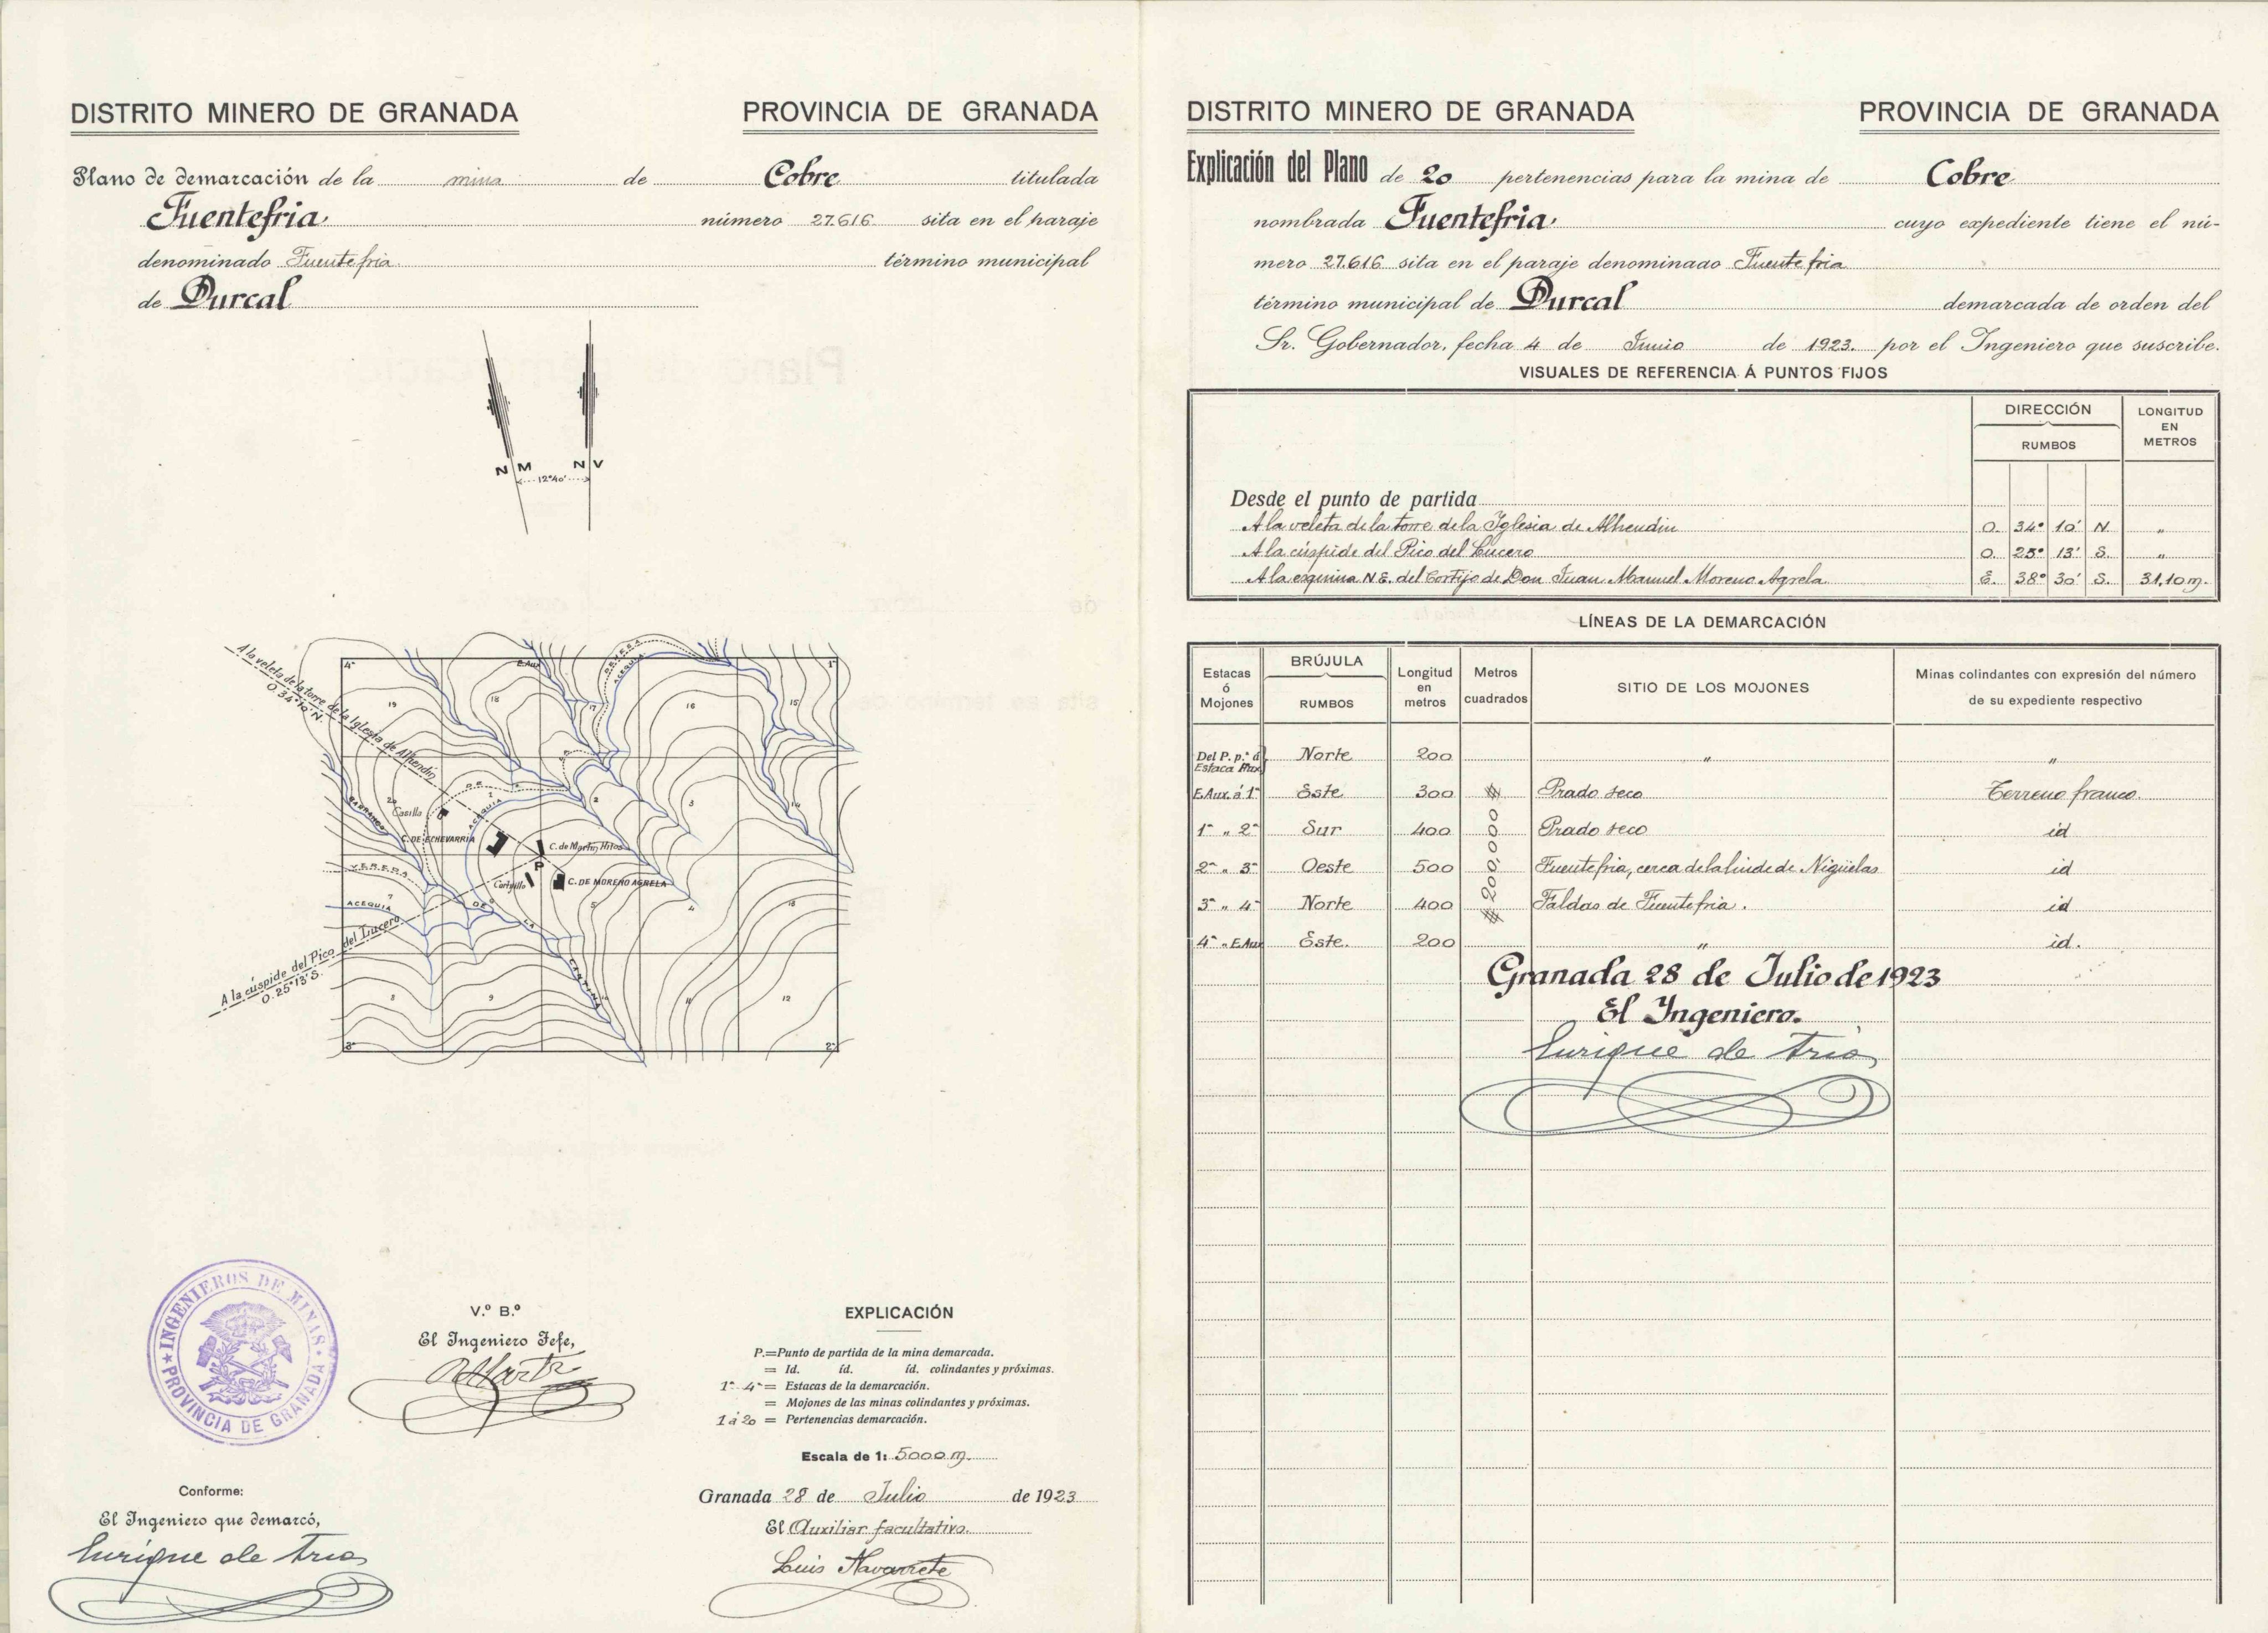 DISTRITO MINERO DE GRANADA PROVINCIA DE GRANADA
Plano de demarcación de la mina de Cobre titulada
Fuentefria número 27.616 sita en el paraje
denominado Fuente fria término municipal
de Durcal
N M N V
12°40'
A la veleta de la torre de la Iglesia de Alhendin
O. 34° 10' N.
4ª E. Aux. 1ª
VEREDA
ACEQUIA
19 18 17 16 15
20 1 2 3 14
Casilla
BARRANCO
ACEQUIA
C. DE ECHEVARRIA
C. de Martin Hitos
P
VEREDA
Cortijillo C. DE MORENO AGRELA
7 5 4 13
ACEQUIA DE LA
A la cúspide del Pico del Lucero
O. 25° 13' S.
8 9 11 12
3ª 2ª
INGENIEROS DE MINAS
PROVINCIA DE GRANADA
V.º B.º
El Ingeniero Jefe,
EXPLICACIÓN
P.=Punto de partida de la mina demarcada.
= Id. íd. íd. colindantes y próximas.
1ª 4ª = Estacas de la demarcación.
= Mojones de las minas colindantes y próximas.
1 á 20 = Pertenencias demarcación.
Escala de 1: 5000 m.
Granada 28 de Julio de 1923
El Auxiliar facultativo.
Luis Navarrete
Conforme:
El Ingeniero que demarcó,
Enrique de Trias
DISTRITO MINERO DE GRANADA PROVINCIA DE GRANADA
Explicación del Plano de 20 pertenencias para la mina de Cobre
nombrada Fuentefria cuyo expediente tiene el nú-
mero 27.616 sita en el paraje denominado Fuente fria
término municipal de Durcal demarcada de orden del
Sr. Gobernador, fecha 4 de Junio de 1923. por el Ingeniero que suscribe.
VISUALES DE REFERENCIA Á PUNTOS FIJOS
DIRECCIÓN LONGITUD EN METROS
RUMBOS
Desde el punto de partida
A la veleta de la torre de la Iglesia de Alhendin O. 34° 10' N. "
A la cúspide del Pico del Lucero O. 25° 13' S. "
A la esquina N.E. del Cortijo de Don Juan Manuel Moreno Agrela E. 38° 30' S. 31,10 m.
LÍNEAS DE LA DEMARCACIÓN
Estacas ó Mojones BRÚJULA RUMBOS Longitud en metros Metros cuadrados SITIO DE LOS MOJONES Minas colindantes con expresión del número de su expediente respectivo
Del P. p.ª á Estaca Aux. Norte 200 " "
E. Aux. á 1ª Este 300 Prado seco Terreno franco.
1ª " 2ª Sur 400 Prado seco id
2ª " 3ª Oeste 500 Fuentefria, cerca de la linde de Nigüelas id
3ª " 4ª Norte 400 Faldas de Fuentefria. id
4ª " E. Aux Este. 200 " id.
# 200,000 #
Granada 28 de Julio de 1923
El Ingeniero.
Enrique de Trias